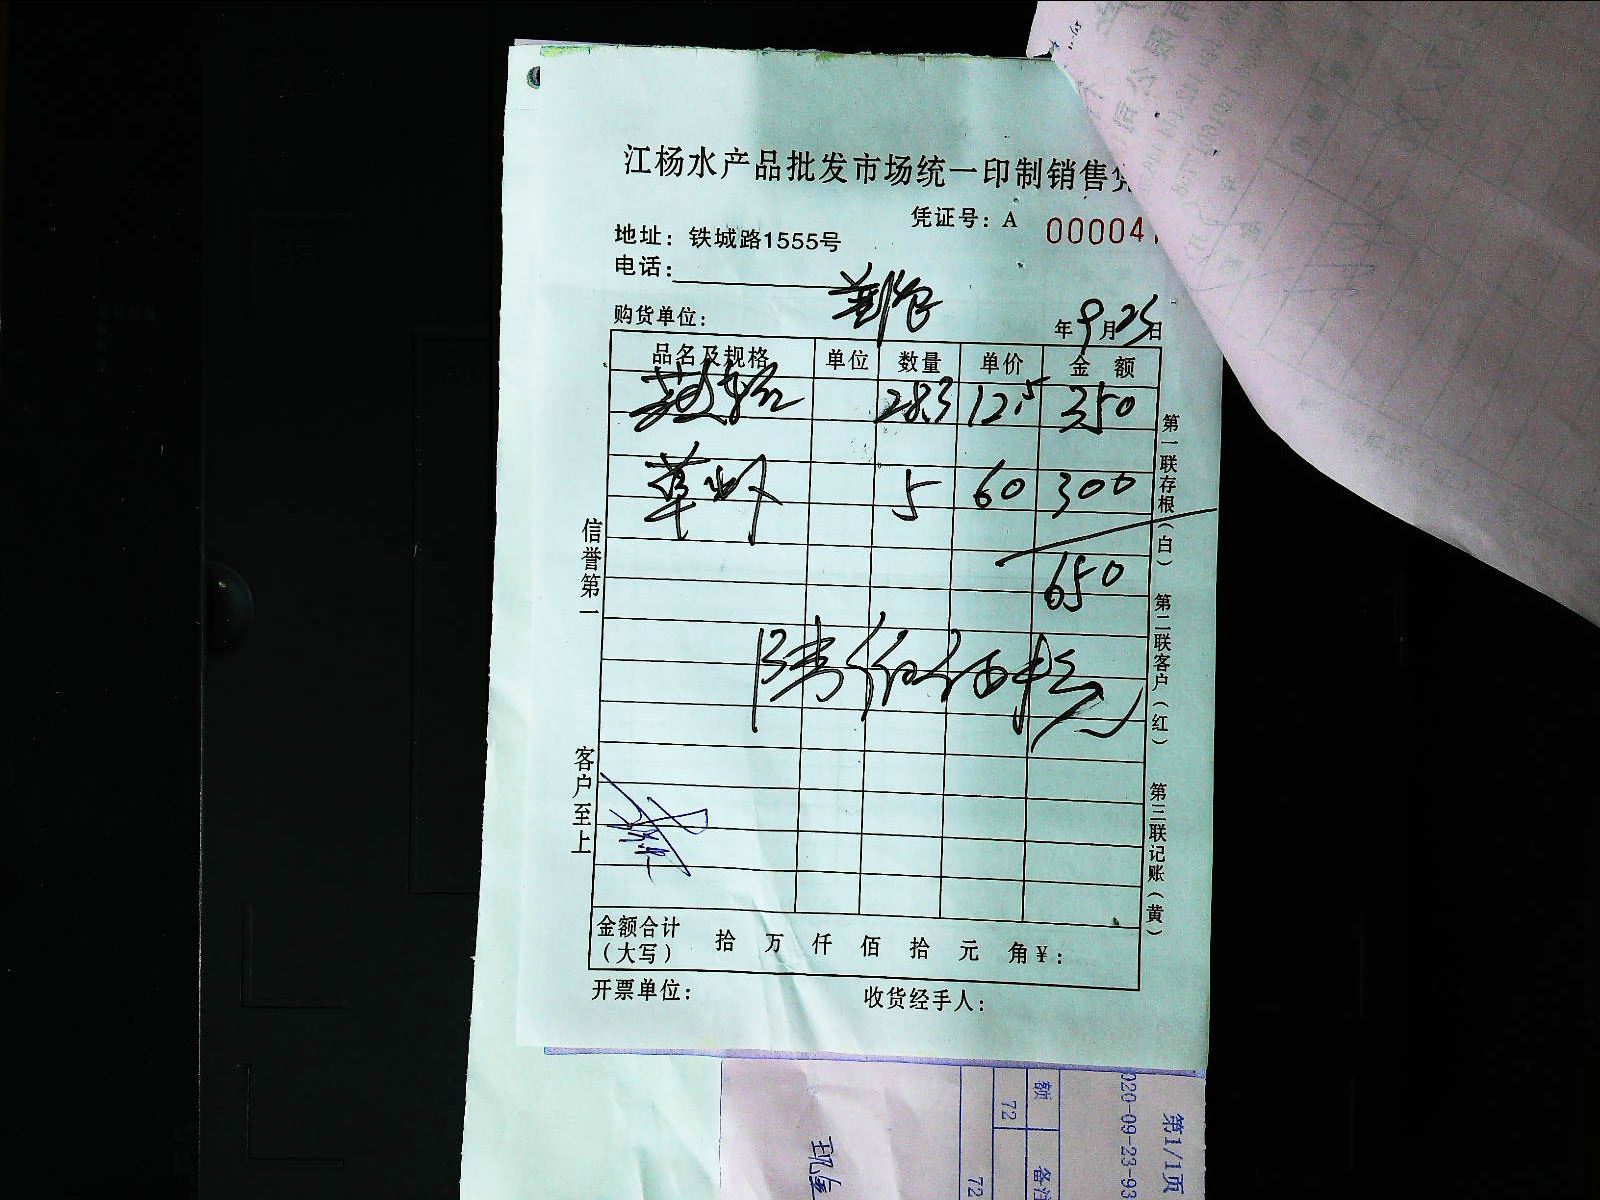 江杨水产品批发市场统一印制销售凭
凭证号：A 00004
地址：铁城路1555号
电话：
购货单位：
年9月25日
品名及规格 单位 数量 单价 金额
28.3 12.5 350
草虾 5 60 300
650
陆佰伍拾元
信誉第一
客户至上
第一联存根（白）
第二联客户（红）
第三联记账（黄）
金额合计（大写） 拾 万 仟 佰 拾 元 角 ¥：
开票单位：
收货经手人：
第1/1页
020-09-23-93
额
备注
72
72